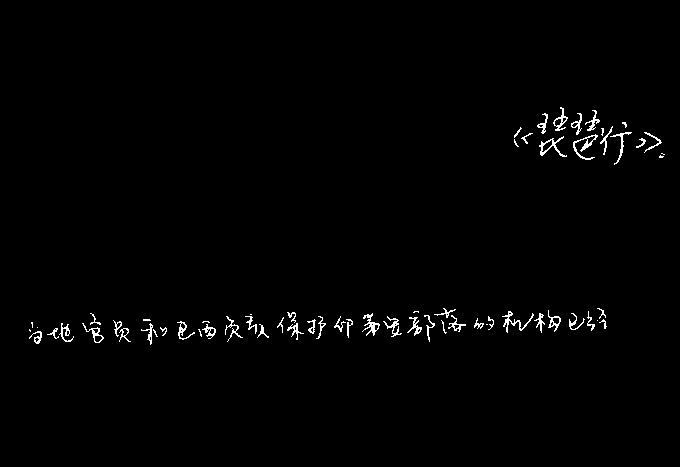 《琵琶行》。
当地官员和巴西负责保护印第安部落的机构已经